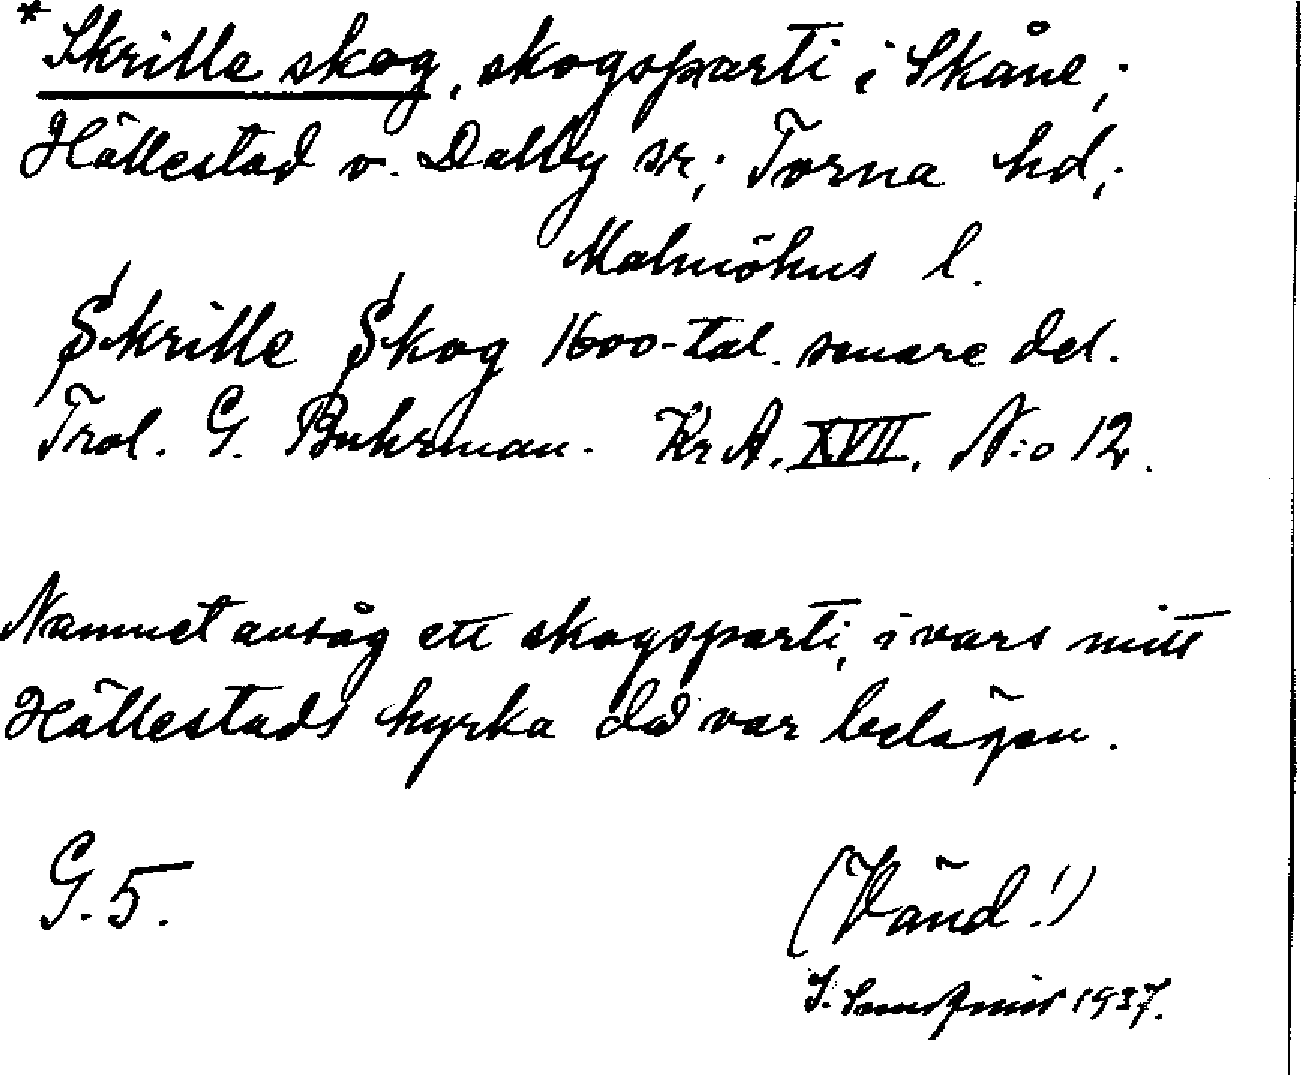 * Skrille skog, skogsparti i Skåne;
Hällestad v. Dalby sn; Torna hd;
Malmöhus l.
Skrille Skog 1600-tal. senare del.
Trol. G. Buhrman. Kr A. XVII. N:o 12.
Namnet avsåg ett skogsparti, i vars mitt
Hällestads kyrka då var belägen.
G. 5.
(Vänd!)
1937.